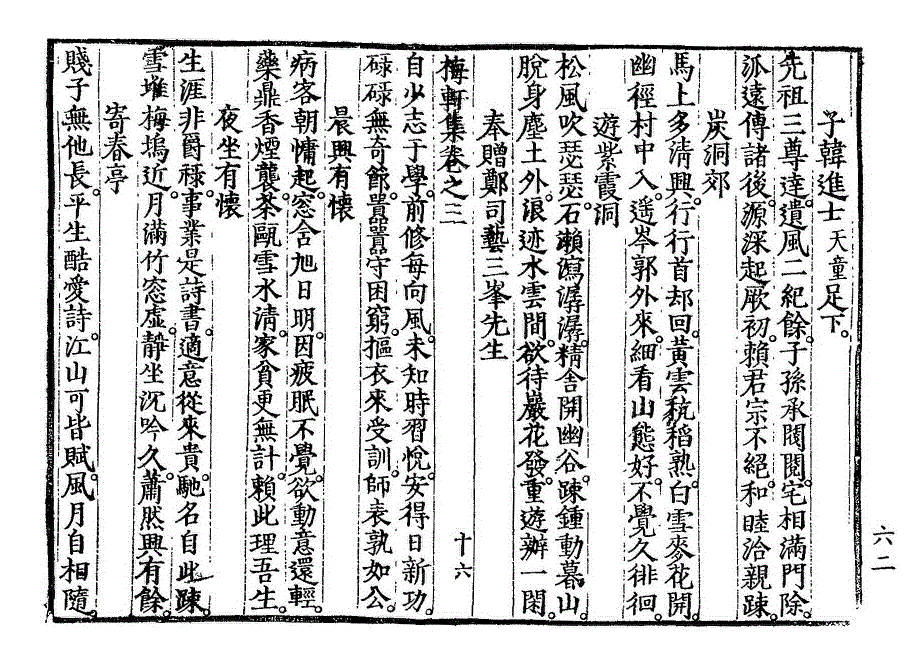 子韓進士天童足下。
先祖三尊達。遺風二紀餘。子孫承閥閱。宅相滿門除。
派遠傳諸後。源深起厥初。賴君宗不絕。和睦洽親踈。
炭洞郊
馬上多淸興。行行首却回。黃雲秔稻熟。白雪麥花開。
幽徑村中入。遙岑郭外來。細看山態好。不覺久徘徊
遊紫霞洞
松風吹瑟瑟。石瀨瀉潺潺。精舍開幽谷。踈鍾動暮山。
脫身塵土外。浪迹水雲間。欲待巖花發。重遊辦一閑。
奉贈鄭司藝三峯先生
梅軒集卷之三
十六
自少志于學。前修每向風。未知時習悅。安得日新功。
碌碌無奇節。囂囂守困窮。摳衣來受訓。師表孰如公。
晨興有懷
病客朝慵起。窓含旭日明。因疲眠不覺。欲動意還輕。
藥鼎香煙襲。茶甌雪水淸。家貧更無計。賴此理吾生。
夜坐有懷
生涯非爵祿。事業是詩書。適意從來貴。馳名自此踈。
雪堆梅塢近。月滿竹窓虛。靜坐沉吟久。蕭然興有餘。
寄春亭
賤子無他長。平生酷愛詩。江山可皆賦。風月自相隨。
六二